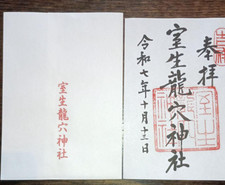 室生龍穴神社
奉拝
室生龍穴神社
令和七年十月十三日